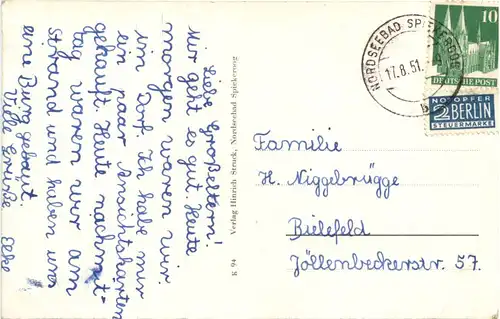 Liebe Großeltern!
Mir geht es gut. Heute
morgen waren wir
im Dorf. Ich habe mir
ein paar Ansichtskarten
gekauft. Heute nachmit-
tag waren wir am
Strand und haben uns
eine Burg gebaut.
Viele Grüße Elke
K 94 Verlag Hinrich Struck, Nordseebad Spiekeroog
NORDSEEBAD SPIEKEROOG
17.8.51.
b
10
DEUTSCHE POST
NOTOPFER
2 BERLIN
STEUERMARKE
Familie
H. Niggebrügge
Bielefeld
Jöllenbeckerstr. 57.